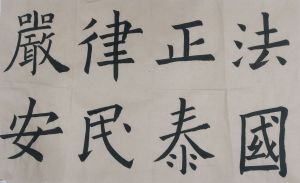 法正律嚴
國泰民安